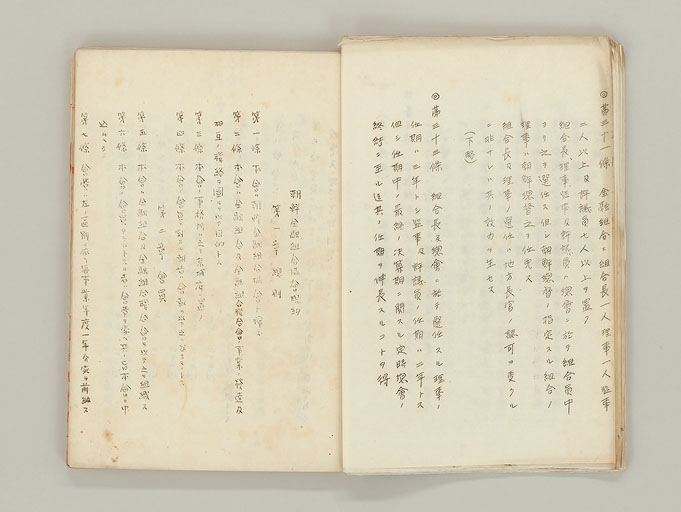 ◎第三十一條 金融組合ニ組合長一人理事一人監事
二人以上及評議員七人以上ヲ置ク
組合長、理事監事及評議員ハ總會ニ於テ組合員中
ヨリ之ヲ選任ス但シ朝鮮總督ノ指定スル組合ノ
理事ハ朝鮮總督之ヲ任免ス
組合長及理事ノ選任ハ地方長官ノ認可ヲ受クル
ニ非サレハ其ノ效力ヲ生セス
(下略)
◎第三十二條 組合長及總會ニ於テ選任スル理事ノ
任期ハ三年トシ監事及評議員ノ任期ハ二年トス
但シ任期中ノ最終ノ決算期ニ關スル定時總會ノ
終結ニ至ル迄其ノ任期ヲ伸長スルコトヲ得
朝鮮金融組合協會規約
第一章 總則
第一條 本會ハ朝鮮金融組合協會ト稱ス
第二條 本會ハ金融組合及金融組合聯合會ノ事業ノ發達及
相互ノ聯絡ヲ圖ルヲ以テ目的トス
第三條 本會ノ事務所ハ之ヲ京城府ニ置ク
第四條 本會ノ
第二章 會員
第五條 本會ハ金融組合及金融組合聯合會ヲ以テ之ヲ組織ス
第六條 本會ノ
第七條 會費ハ左ノ區別ニ依リ每事業年度一年分宛